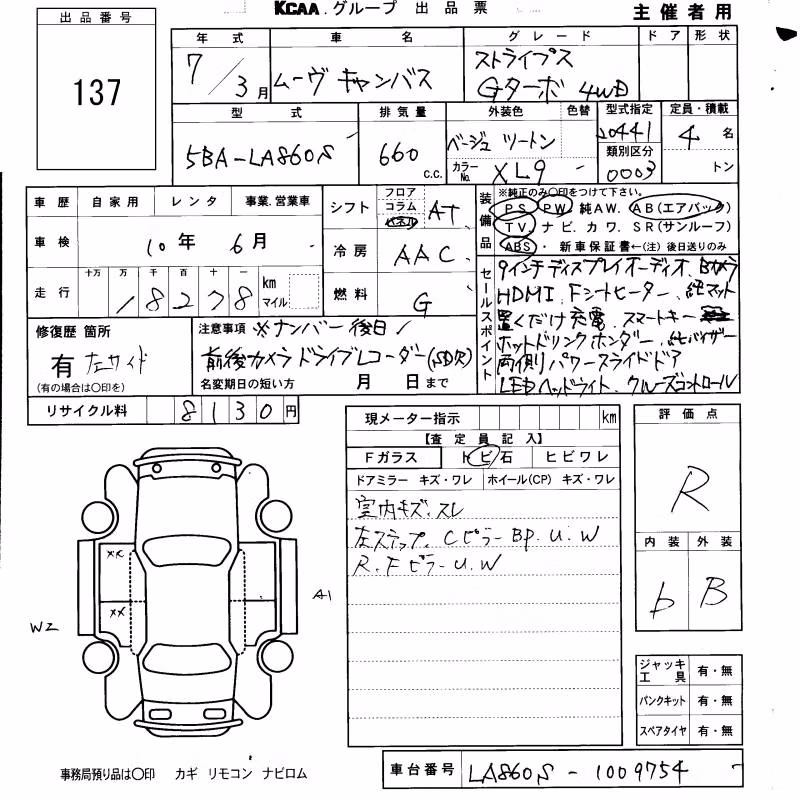 KCAA.グループ 出品票
主催者用
出品番号
137
年式
7/3月
車名
ムーヴ キャンバス
グレード
ストライプス
Gターボ 4WD
ドア
形状
型式
5BA-LA860S
排気量
660 c.c.
外装色
色替
ベージュ ツートン
カラーNo.
XL9 -
型式指定
20441
類別区分
0003
定員・積載
4名
トン
車歴
自家用
レンタ
事業.営業車
車検
10年 6月
走行
十万 万 千 百 十 一
18278
km
マイル
シフト
フロア
コラム
パネル
AT
冷房
AAC
燃料
G
装備品
※純正のみ〇印をつけて下さい。
PS PW 純AW. AB(エアバック)
TV ナビ.カワ.SR(サンルーフ)
ABS ・ 新車保証書←(注)後日送りのみ
セールスポイント
9インチディスプレイオーディオ.Bカメラ
HDMI.Fシートヒーター.純マット
置くだけ充電 スマートキー
ホットドリンクホンダー.純バイザー
両側パワースライドドア
LEDヘッドライト.クルーズコントロール
修復歴 箇所
有 左サイド
(有の場合は〇印を)
注意事項 ※ナンバー後日
前後カメラドライブレコーダー(SD欠)
名変期日の短い方 月 日まで
リサイクル料
8130円
現メーター指示
km
【査定員記入】
Fガラス
トビ石
ヒビワレ
ドアミラー キズ・ワレ
ホイール(CP) キズ・ワレ
室内キズ.スレ
左ステップ.Cピラー BP.U.W
R.FピラーU.W
評価点
R
内装
外装
b
B
XX
XX
W2
A1
ジャッキ
工具
有・無
パンクキット
有・無
スペアタイヤ
有・無
事務局預り品は〇印 カギ リモコン ナビロム
車台番号
LA860S-1009754